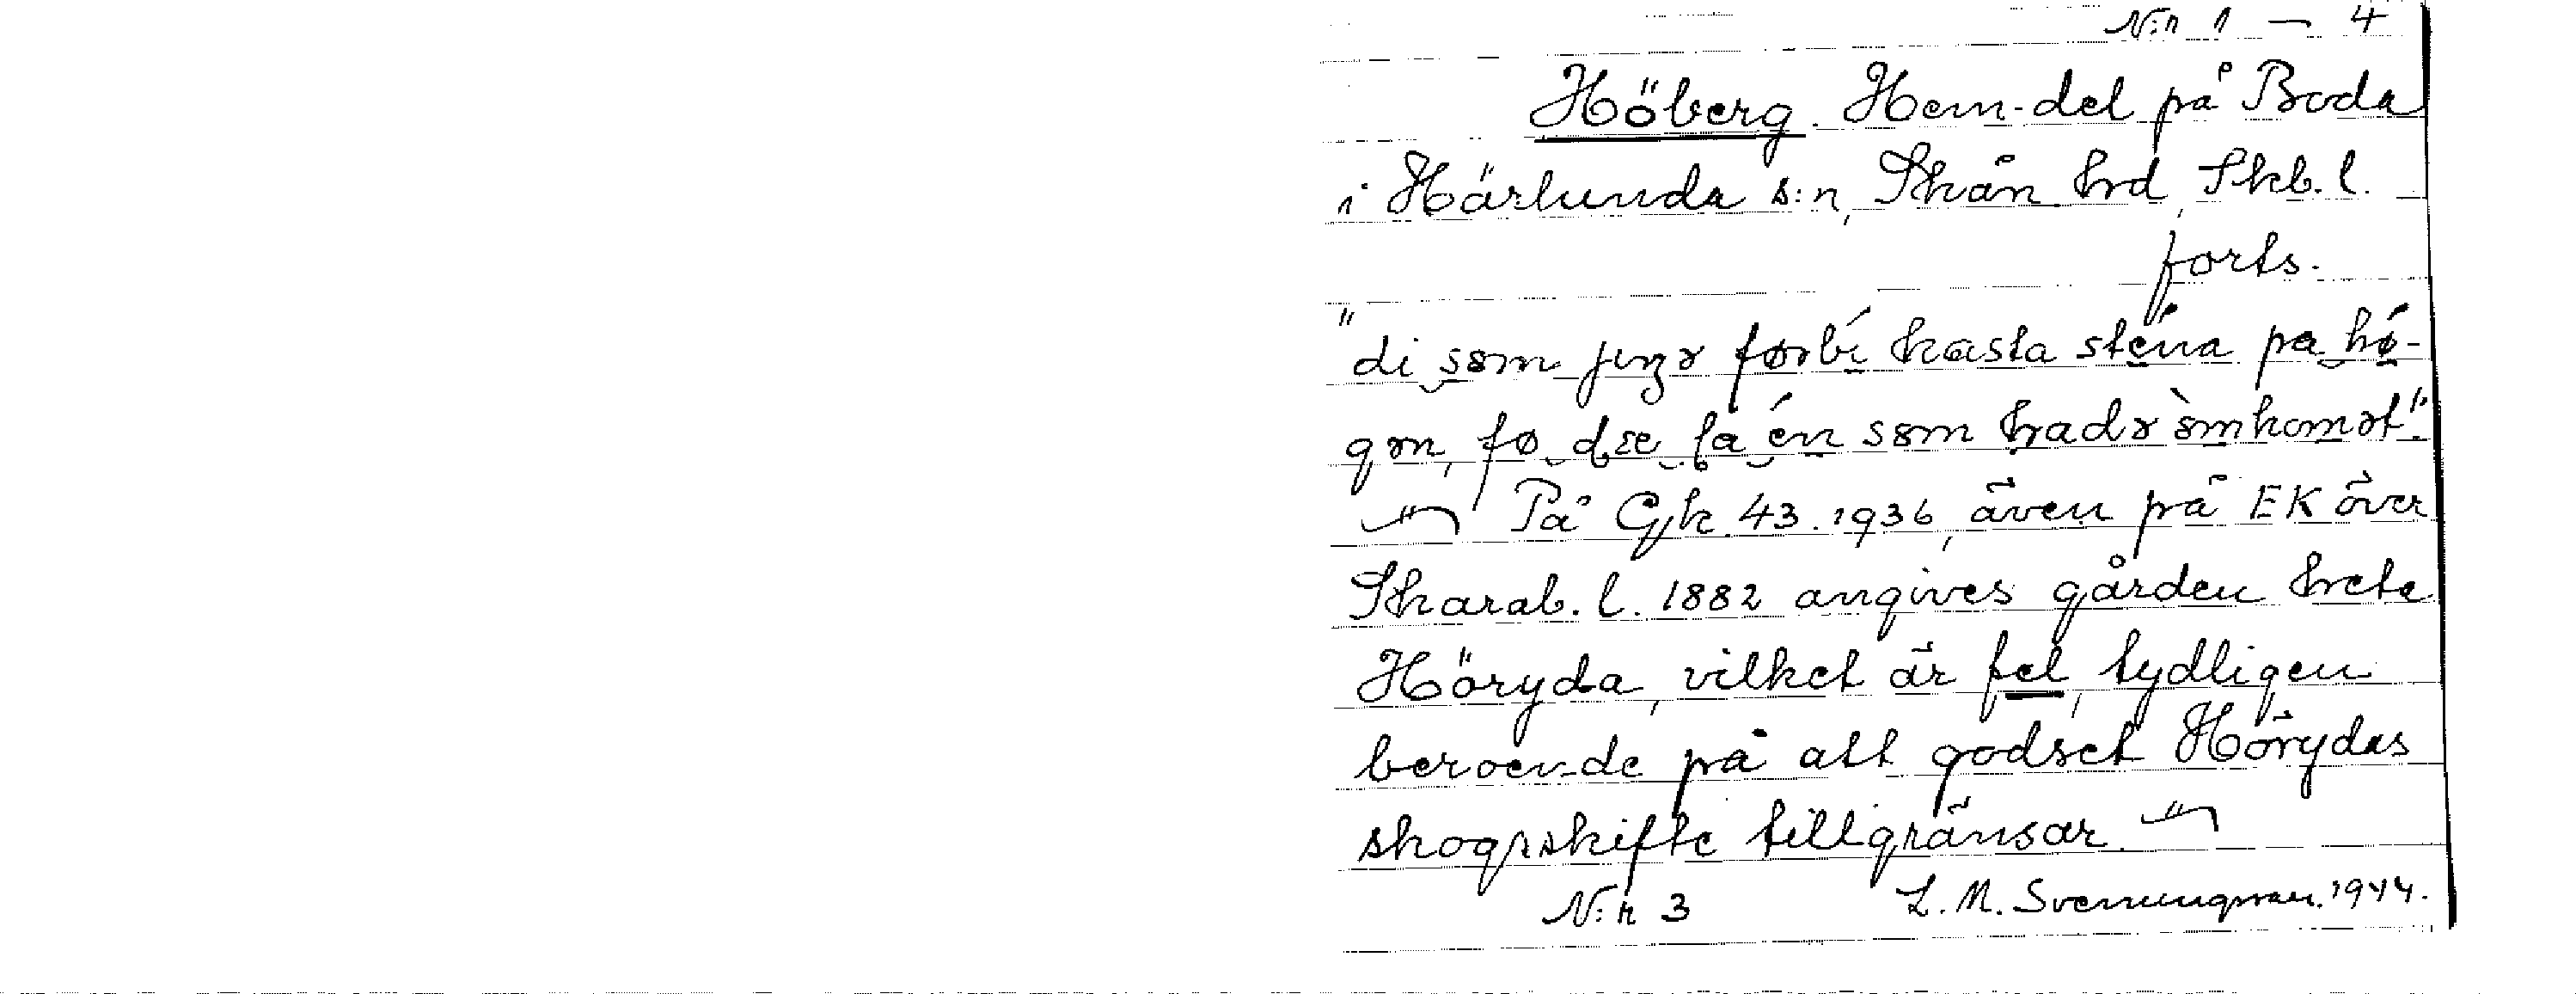 N:r 1 — 4
Höberg. Hem.del på Boda
i Härlunda s:n, Skån. hrd, Skb. l.
forts.
"di som jıŋə førbí kasta sténa pa hǿ-
gən, fø dæ lå én som hadə òmkomət".
På Gk 43. 1936, även på EK över
Skarab. l. 1882 angives gården heta
Höryda, vilket är fel, tydligen
beroende på att godset Hörydas
skogsskifte tillgränsar.
N:r 3 L. M. Svenungsson. 1944.